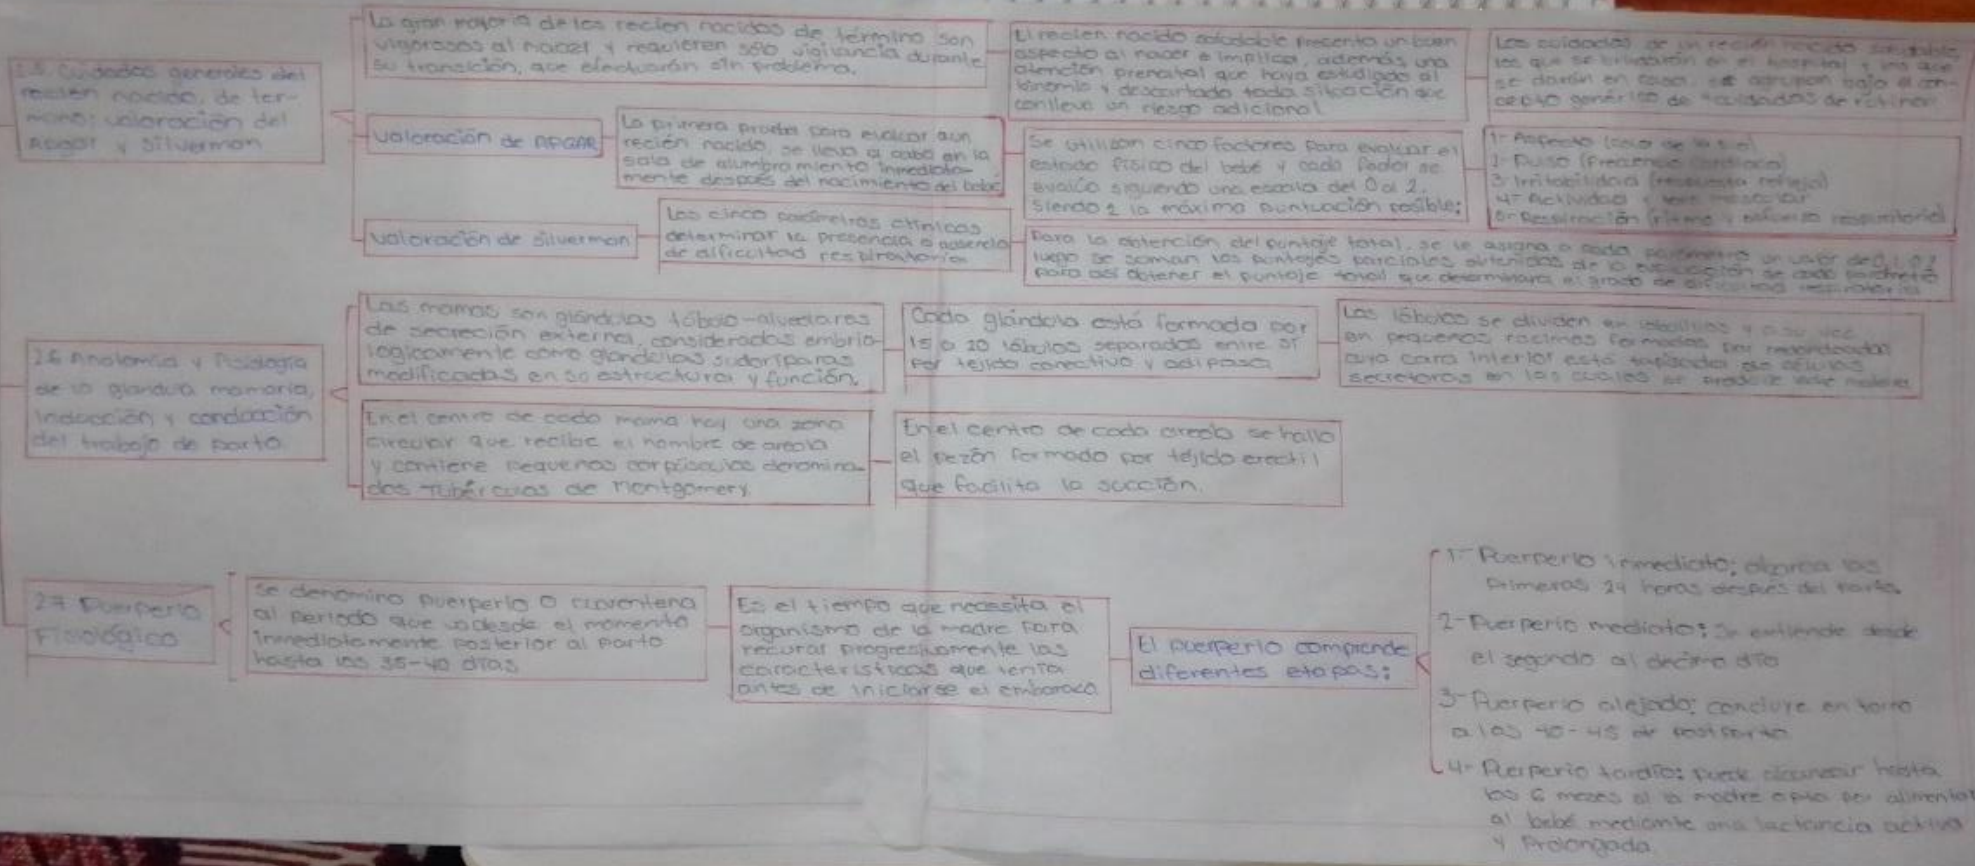 2.5 Cuidados generales del
recien nacido, de ter-
mino: valoración del
Apgar y Silverman
La gran mayoría de los recien nacidos de término son
vigorosos al nacer y requieren sólo vigilancia durante
su transición, que efectuarán sin problema.
El recien nacido saludable presenta un buen
aspecto al nacer e implica, además una
atención prenatal que haya estudiado al
binomio y descartado toda situación que
conlleva un riesgo adicional
Los cuidados de un recien nacido saludable
los que se brindarán en el hospital y los que
se darán en casa, se agrupan bajo el con-
cepto genérico de cuidados de rutina.
Valoración de APGAR
La primera prueba para evaluar a un
recién nacido, se lleva a cabo en la
sala de alumbramiento inmediata-
mente después del nacimiento del bebé
Se utilizan cinco factores para evaluar el
estado físico del bebé y cada factor se
evalúa siguiendo una escala del 0 al 2,
siendo 2 la máxima puntuación posible:
1- Aspecto (color de la piel)
2- Pulso (frecuencia cardiaca)
3- Irritabilidad (respuesta refleja)
4- Actividad y tono muscular
5- Respiración (ritmo y esfuerzo respiratorio)
Valoración de Silverman
Los cinco parámetros clínicos
determinar la presencia o ausencia
de dificultad respiratoria
Para la obtención del puntaje total, se le asigna a cada parámetro un valor de 0, 1 o 2
luego se suman los puntajes parciales obtenidos de la evaluación de cada parámetro
para así obtener el puntaje total que determinara el grado de dificultad respiratoria
2.6 Anatomía y Fisiología
de la glandula mamaria,
inducción y conducción
del trabajo de parto
Las mamas son glándulas túbulo-alveolares
de secreción externa, consideradas embrio-
logicamente como glandulas sudoríparas
modificadas en su estructura y función.
Cada glándula está formada por
15 a 20 lóbulos separados entre sí
por tejido conectivo y adiposo
Los lóbulos se dividen en lobulillos y a su vez
en pequeños racimos formados por redondeadas
cuya cara interior está tapizada de células
secretoras en las cuales se produce leche materna
En el centro de cada mama hay una zona
circular que recibe el nombre de areola
y contiene pequeños corpúsculos denomina-
dos Tubérculos de Montgomery.
En el centro de cada areola se halla
el pezón formado por tejido erectil
que facilita la succión.
2.7 Puerperio
Fisiológico
Se denomina puerperio o cuarentena
al periodo que va desde el momento
inmediatamente posterior al parto
hasta los 35-40 días
Es el tiempo que necesita el
organismo de la madre para
recurar progresivamente las
caracteristicas que tenia
antes de iniciarse el embarazo
El puerperio comprende
diferentes etapas:
1- Puerperio inmediato: abarca las
primeras 24 horas después del parto.
2- Puerperio mediato: se extiende desde
el segundo al decimo día
3- Puerperio alejado: concluye en torno
a los 40-45 de postparto
4- Puerperio tardío: puede alcanzar hasta
los 6 meses si la madre opta por alimentar
al bebé mediante una lactancia activa
y Prolongada.